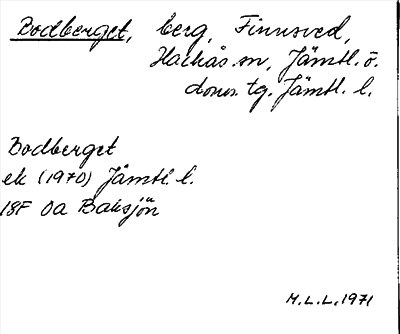 Bodberget, berg, Finnsved,
Hackås sn, Jämtl. ö.
doms. tg. Jämtl. l.
Bodberget
ek (1970) Jämtl l.
18F 0a Baksjön
M.L.L. 1971